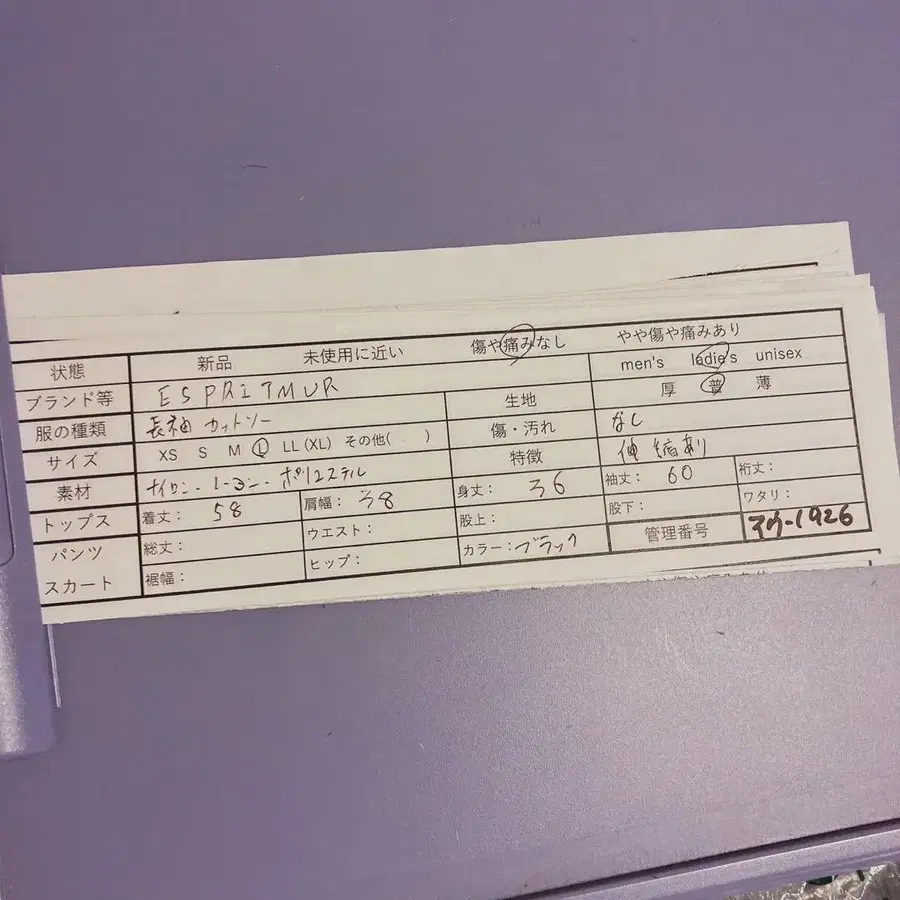 状態 新品 未使用に近い 傷や痛みなし やや傷や痛みあり
ブランド等 ESPRITMUR men's ladie's unisex
服の種類 長袖 カットソー 生地 厚 普 薄
サイズ XS S M L LL(XL) その他( ) 傷・汚れ なし
素材 ナイロン・レーヨン・ポリエステル 特徴 伸縮あり
トップス 着丈: 58 肩幅: 38 身丈: 36 袖丈: 60 裄丈:
パンツ 総丈: ウエスト: 股上: 股下: ワタリ:
スカート 裾幅: ヒップ: カラー:ブラック 管理番号 マウ-1926